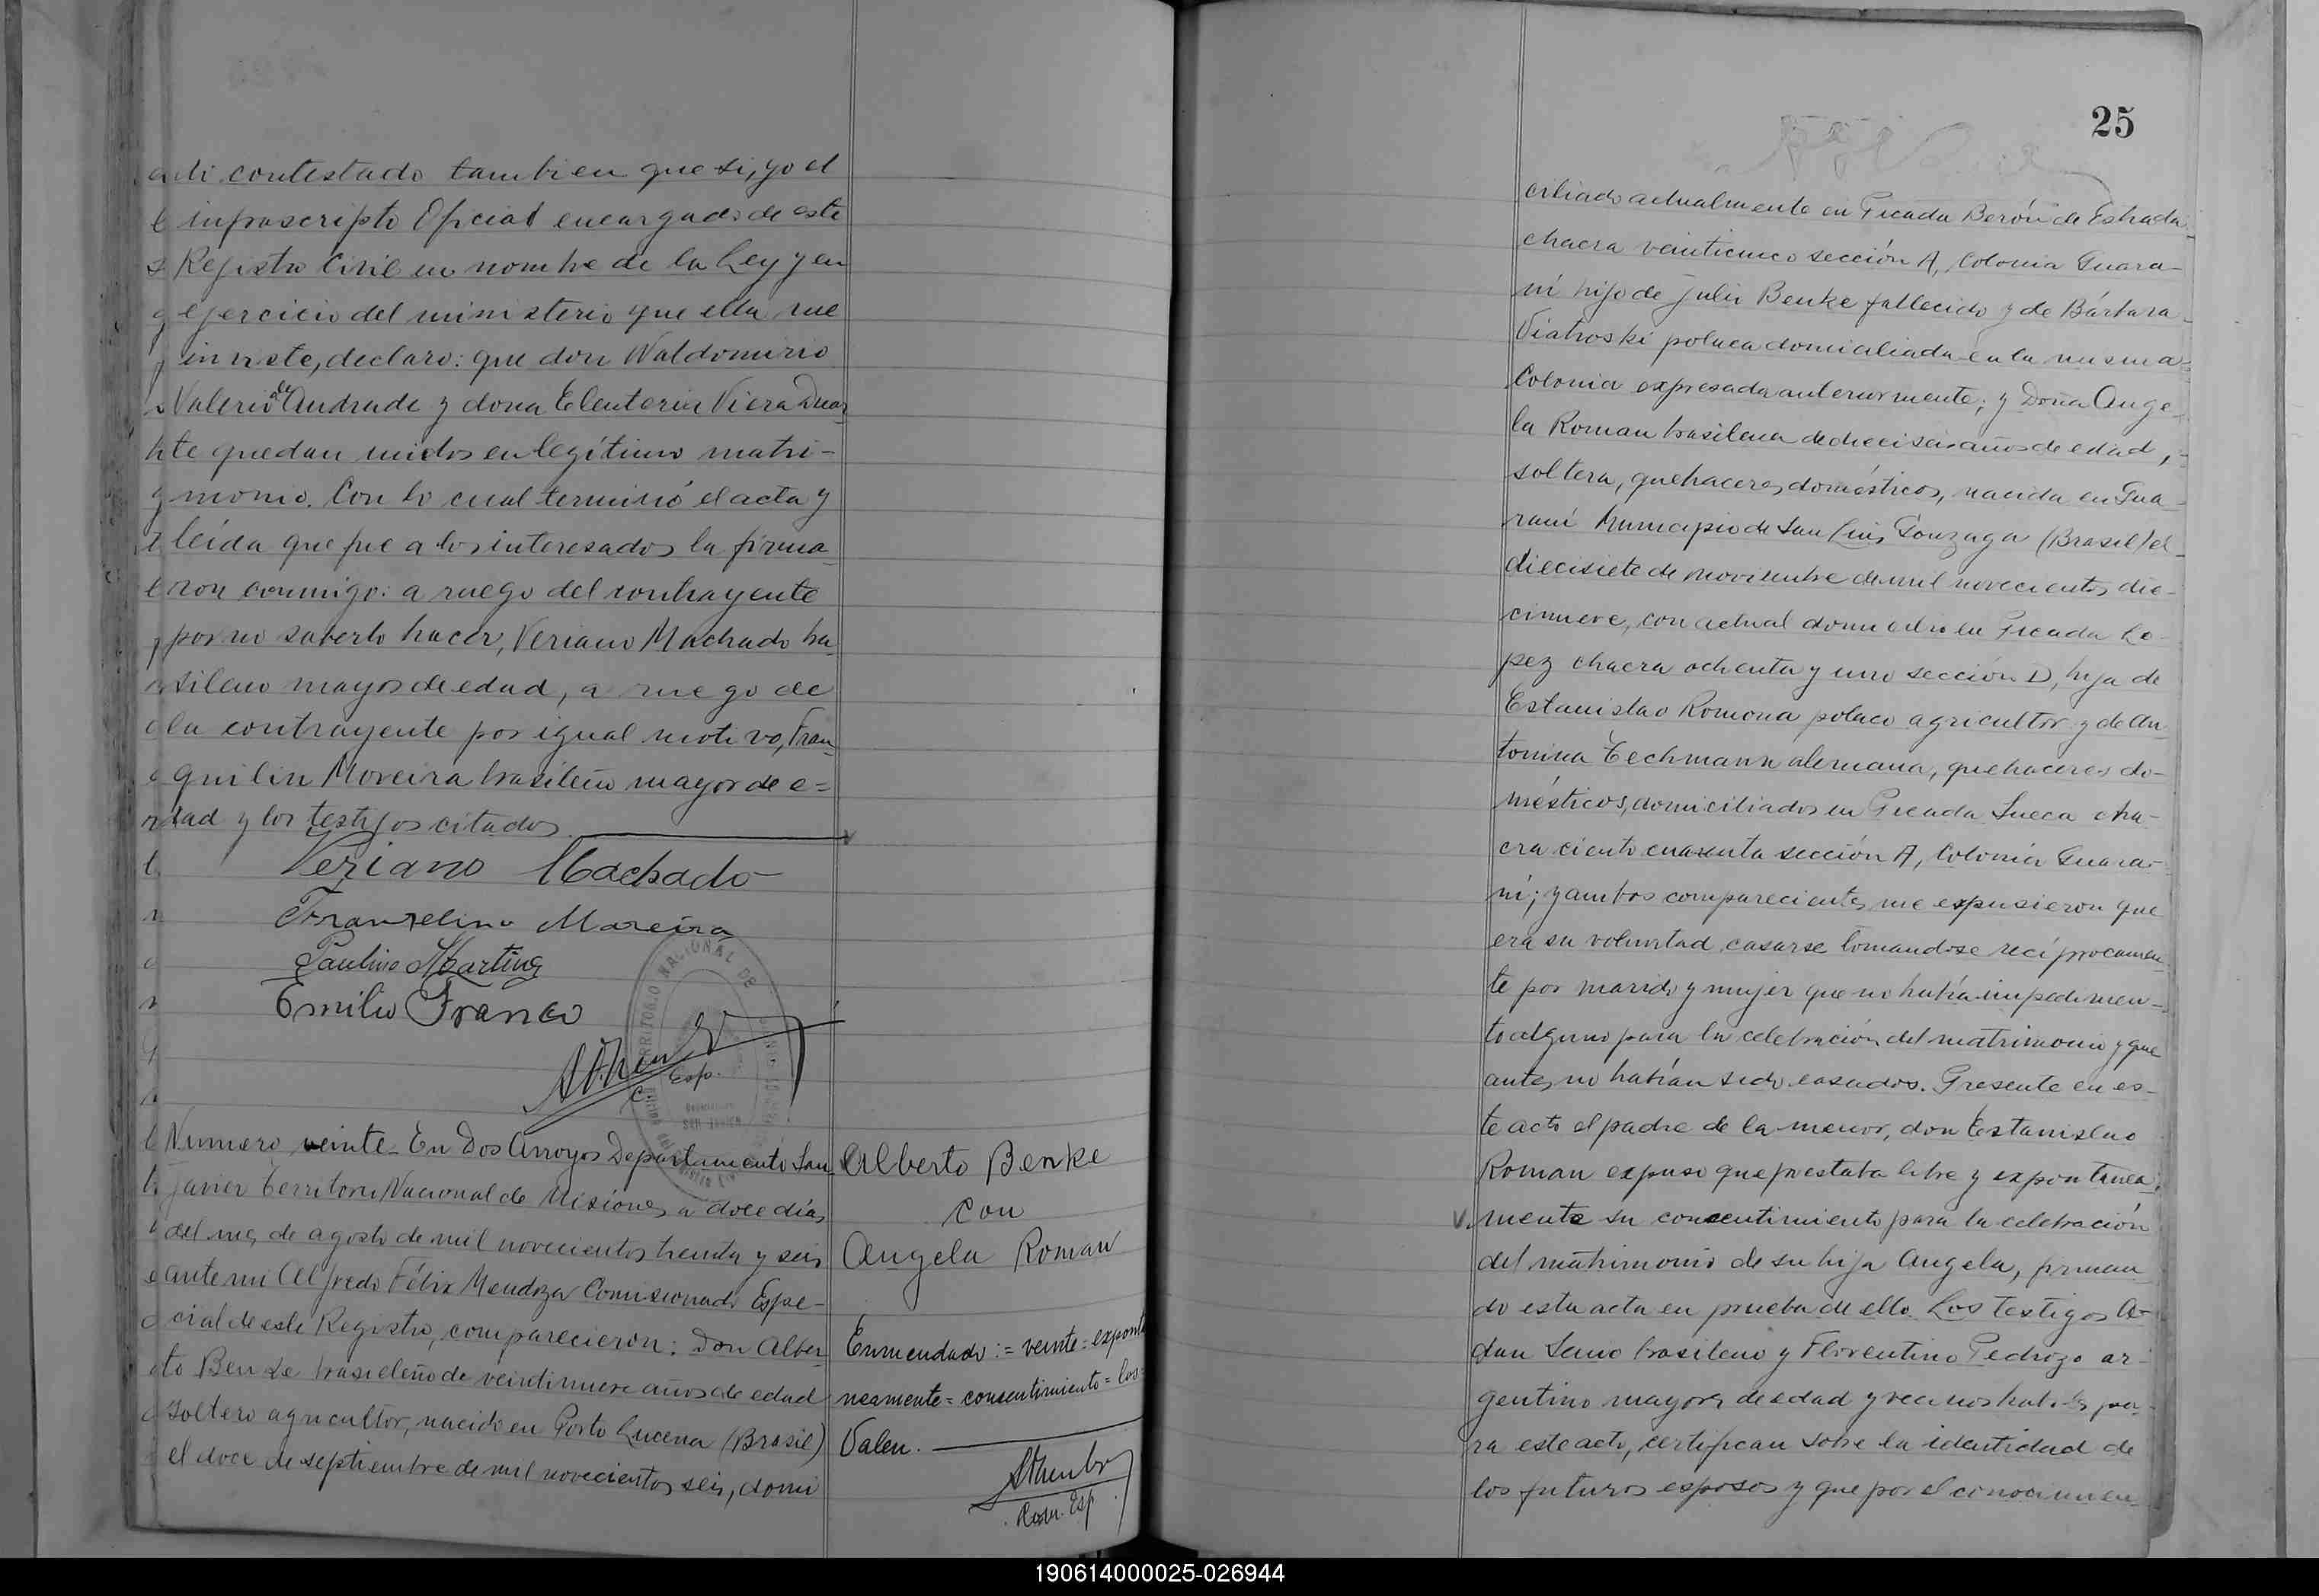 contestado tambien que si, yo el
infrascripto Oficial encargado de este
Registro Civil en nombre de la Ley y en
ejercicio del ministerio que ella me
inviste, declaro: que don Waldomiro
Valerio de Andrade y dona Eleuteria Viera Duar
te quedan unidos en legítimo matri-
monio. Con lo cual terminó el acta y
leída que fue a los interesados la firma
ron conmigo: a ruego del contrayente
por no saberlo hacer, Veriano Machado bra
sileno mayor de edad, a ruego de
la contrayente por igual motivo, Fran
quilin Moreira brasileño mayor de e=
dad y los testigos citados
Veriano Machado
Franzelino Moreira
Paulino Martins
Emilio Franco
C. Esp.
TERRITORIO NACIONAL DE
SAN JAVIER
Numero veinte - En Dos Arroyos Departamento San
Javier Territorio Nacional de Misiones a doce días
del mes de agosto de mil novecientos treinta y seis
ante mi Alfredo Félix Mendoza Comisionado Espe-
cial de este Registro, comparecieron: Don Alber
to Benke brasileño de veintinueve años de edad
soltero agricultor, nacido en Porto Lucena (Brasil)
el doce de septiembre de mil novecientos seis, domi
Alberto Benke
con
Angela Roman
Enmendado := veinte = expontá
neamente = consentimiento = los =
Valen.
Com. Esp
25
ciliado actualmente en Picada Berón de Estrada
chacra veinticinco sección A, Colonia Guara-
ní hijo de Julio Benke fallecido y de Bárbara
Viatroski polaca domiciliada en la misma
Colonia expresada anteriormente; y Doña Ange-
la Roman brasilena de dieciseis años de edad,
soltera, quehaceres domésticos, nacida en Gua
raní Municipio de San Luis Gonzaga (Brasil) el
diecisiete de noviembre de mil novecientos die-
cinueve, con actual domicilio en Picada Lo-
pez chacra ochenta y uno sección D, hija de
Estanislao Romona polaco agricultor y de An
tonina Techmann alemana, quehaceres do-
mésticos, domiciliados en Picada Sueca cha-
cra ciento cuarenta sección A, Colonia Guara-
ní; y ambos comparecientes me expusieron que
era su voluntad casarse tomandose recíprocamen
te por marido y mujer que no había impedimen-
to alguno para la celebración del matrimonio y que
antes no habían sido casados. Presente en es-
te acto el padre de la menor, don Estanislao
Roman expuso que prestaba libre y expontanea
mente su consentimiento para la celebración
del matrimonio de su hija Angela, firman
do esta acta en prueba de ello. Los testigos A-
dan Senio brasileno y Florentino Pedrozo ar-
gentino mayores de edad y vecinos habiles pa-
ra este acto, certifican sobre la identidad de
los futuros esposos y que por el conocimien-
190614000025-026944